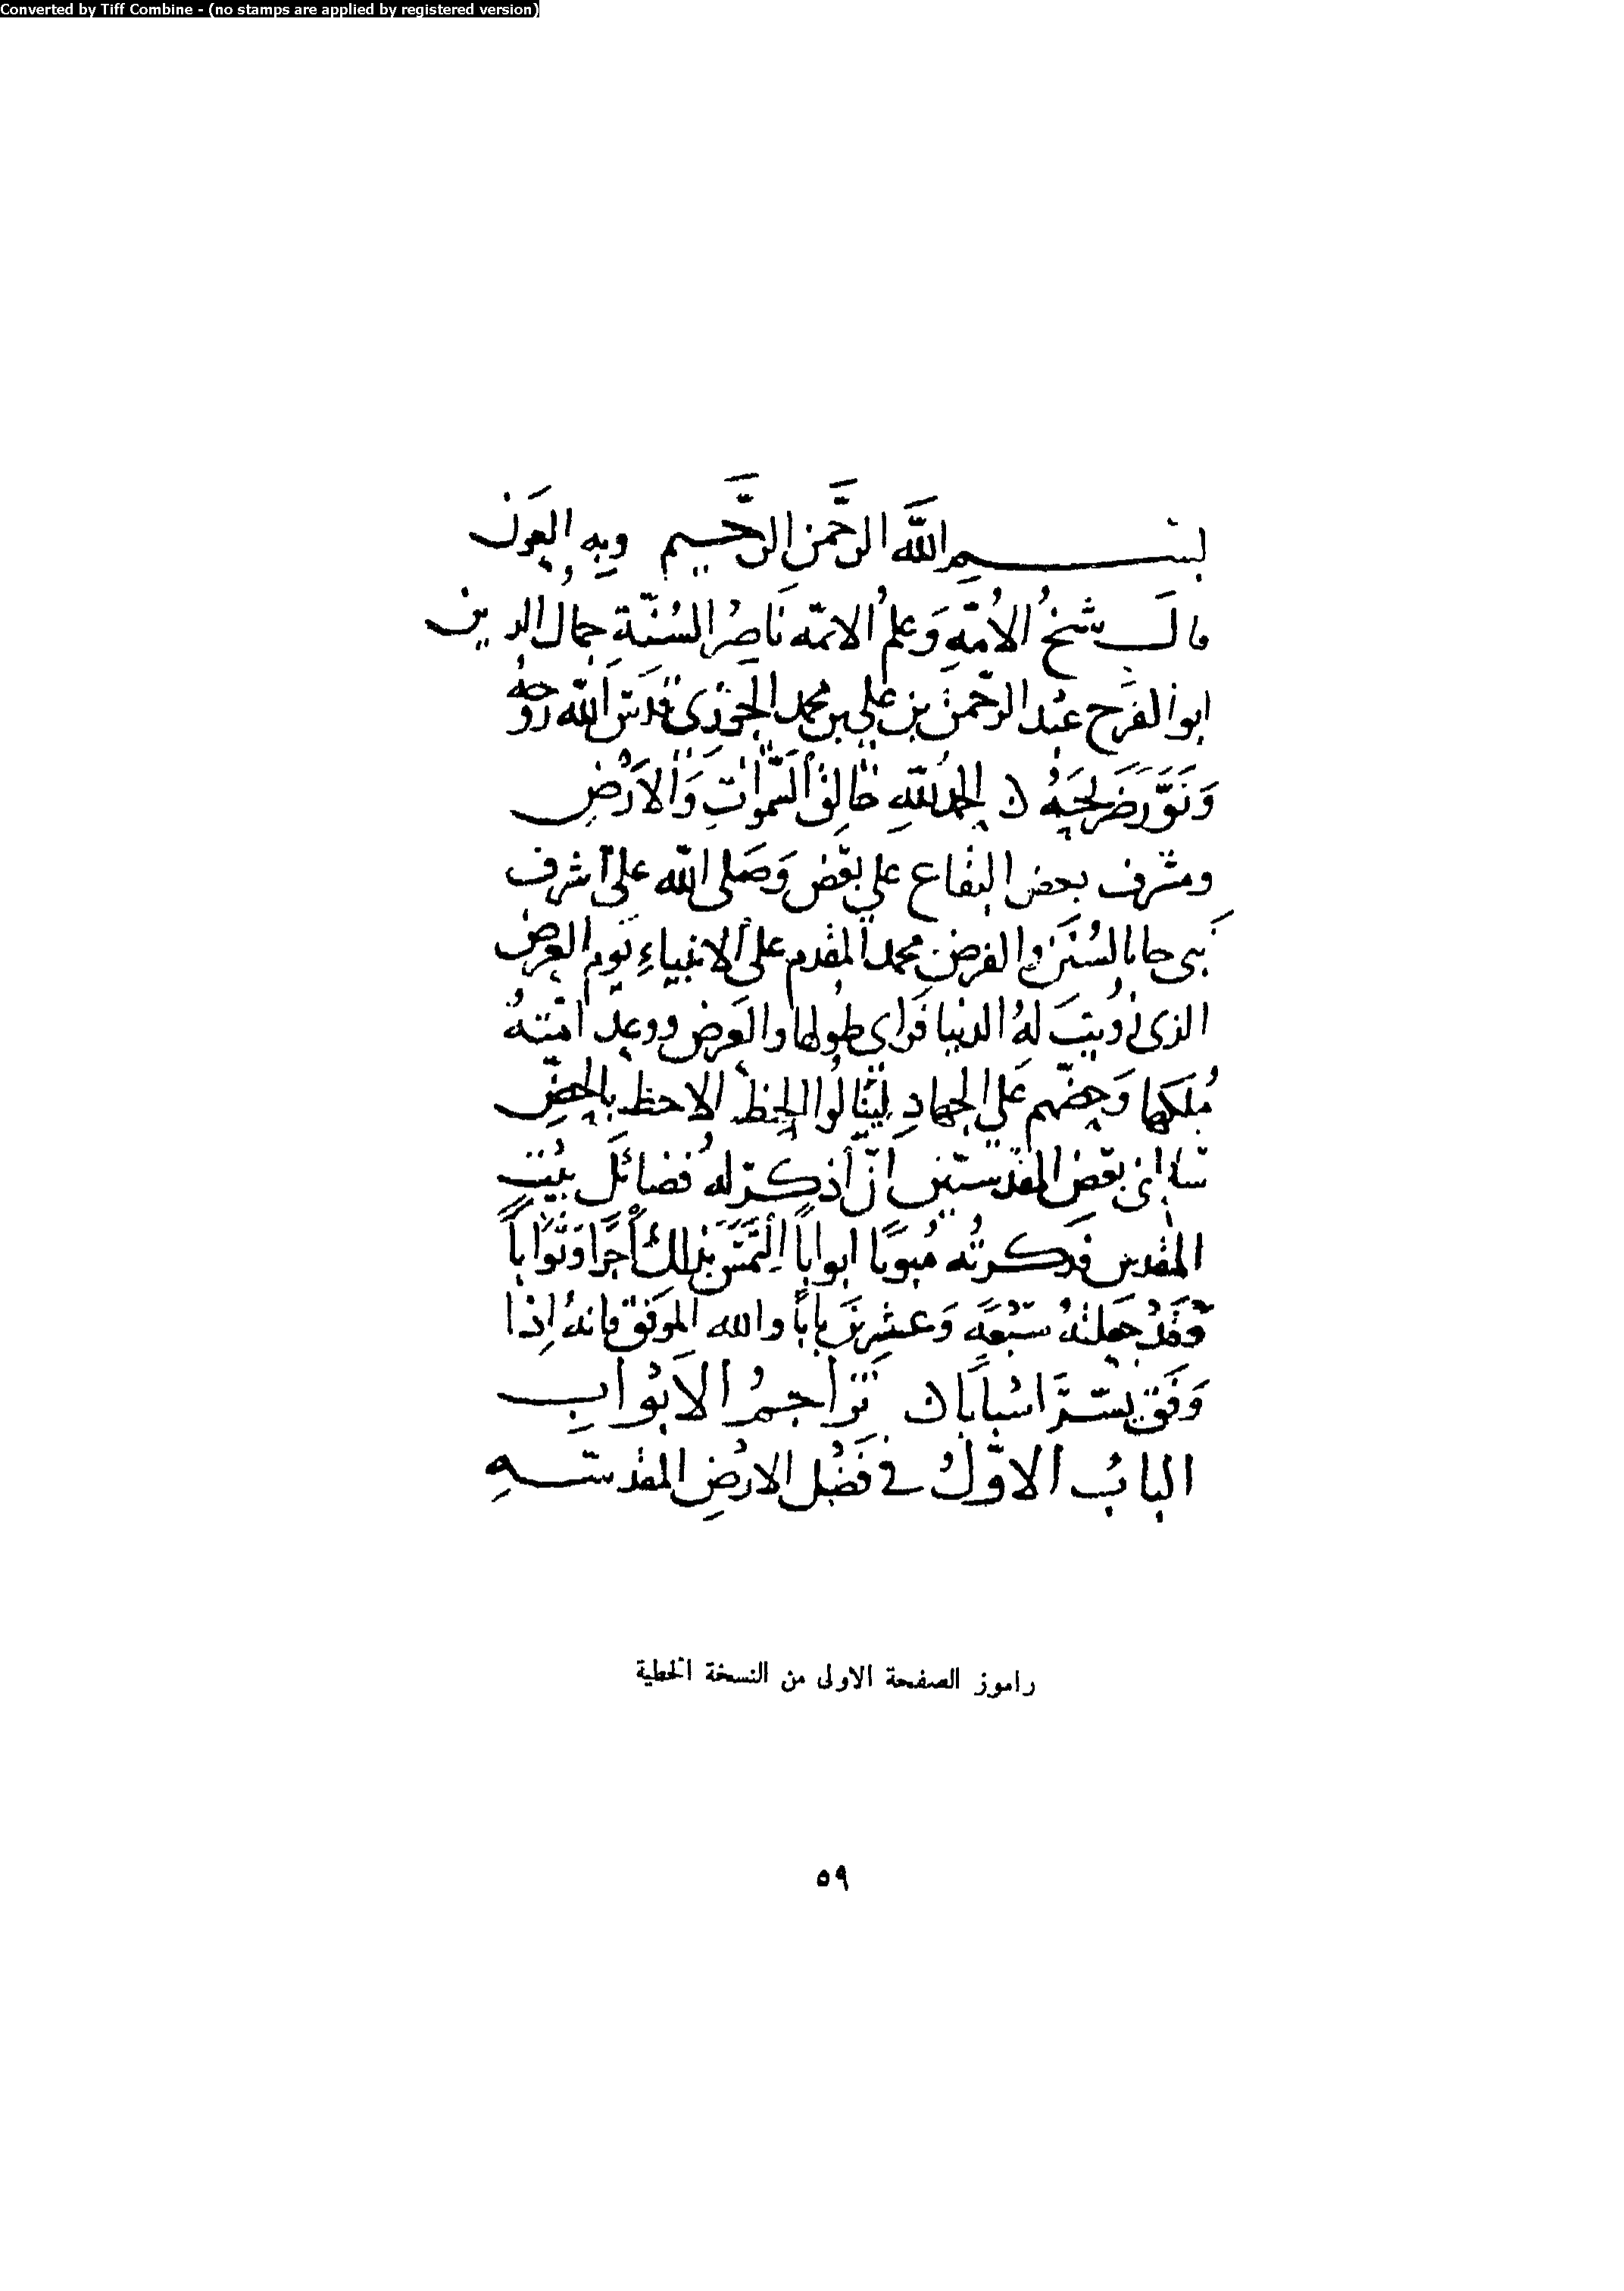 Converted by Tiff Combine - (no stamps are applied by registered version)
بسم الله الرحمن الرحيم وبه العون
قال شيخ الامة وعلم الائمه ناصر السنة جمال الدين
ابو الفرج عبد الرحمن بن علي بن محمد الجوزى قدس الله روحه
ونور ضريحه الحمد لله خالق السموات والارض
ومشرف بعض البقاع على بعض وصلى الله على اشرف
نبى جانا بالسنن والفرض محمد المقدم على الانبياء يوم العرض
الذى زويت له الدنيا فراى طولها والعرض ووعد امته
ملكها وحضهم على الجهاد لينالوا الحظ الاحظ بالحض
سالنى بعض المقدسيين ان اذكر له فضائل بيت
المقدس فذكرته مبوبا ابوابا التمس بذلك أجرا وثوابا
وقد جعلته سبعة وعشرين بابا والله الموفق فانه إذا
وفق يسر اسبابا تراجم الابواب
الباب الاول في فضل الارض المقدسه
راموز الصفحة الاولى من النسخة الخطية
٥٩